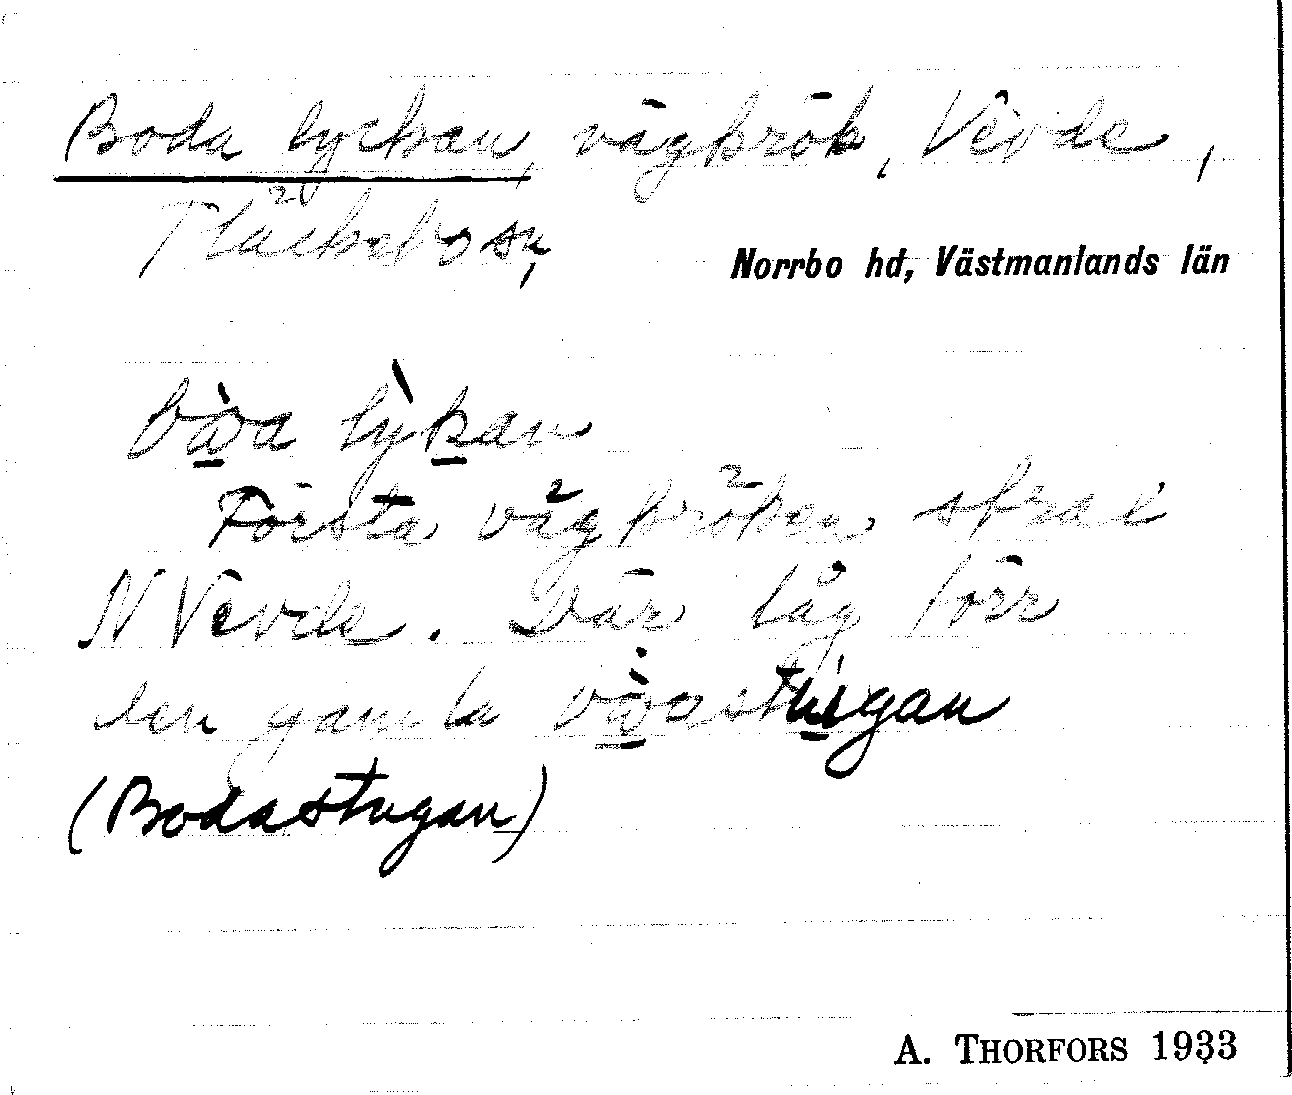 Boda lyckan, vägkrök, Vevde,
Fläckebo sn,
Norrbo hd, Västmanlands län
lykan
Första vägkröken strax i
N Vevde. Där låg förr
den gamla
(Bodastugan)
A. THORFORS 1933